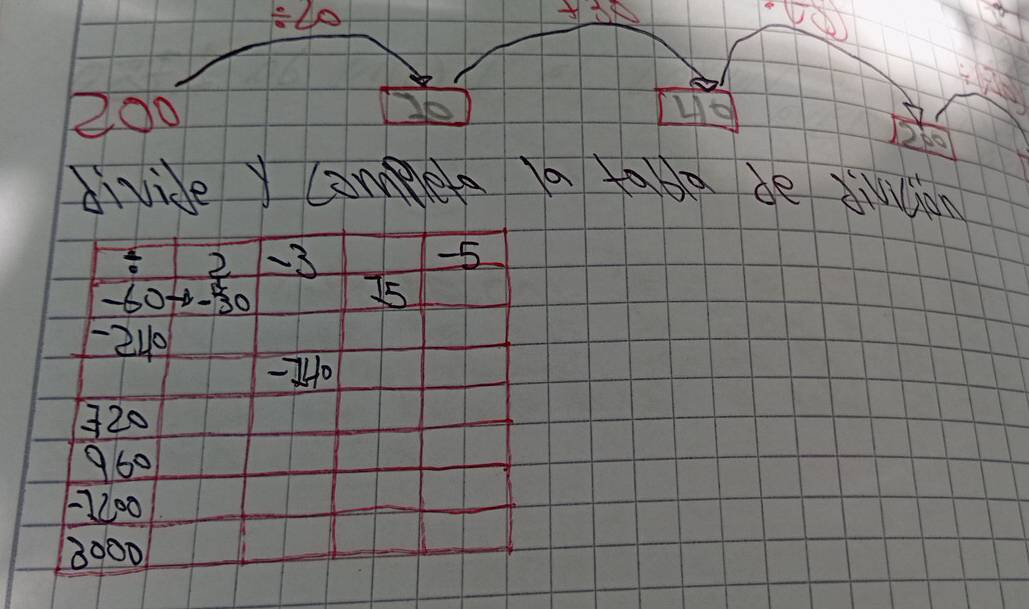 ÷20
200 20 40 200
Divide y completa la tabla de división
÷ 2 -3 -5
-60 → -30 15
-240
-140
720
960
-1200
3000